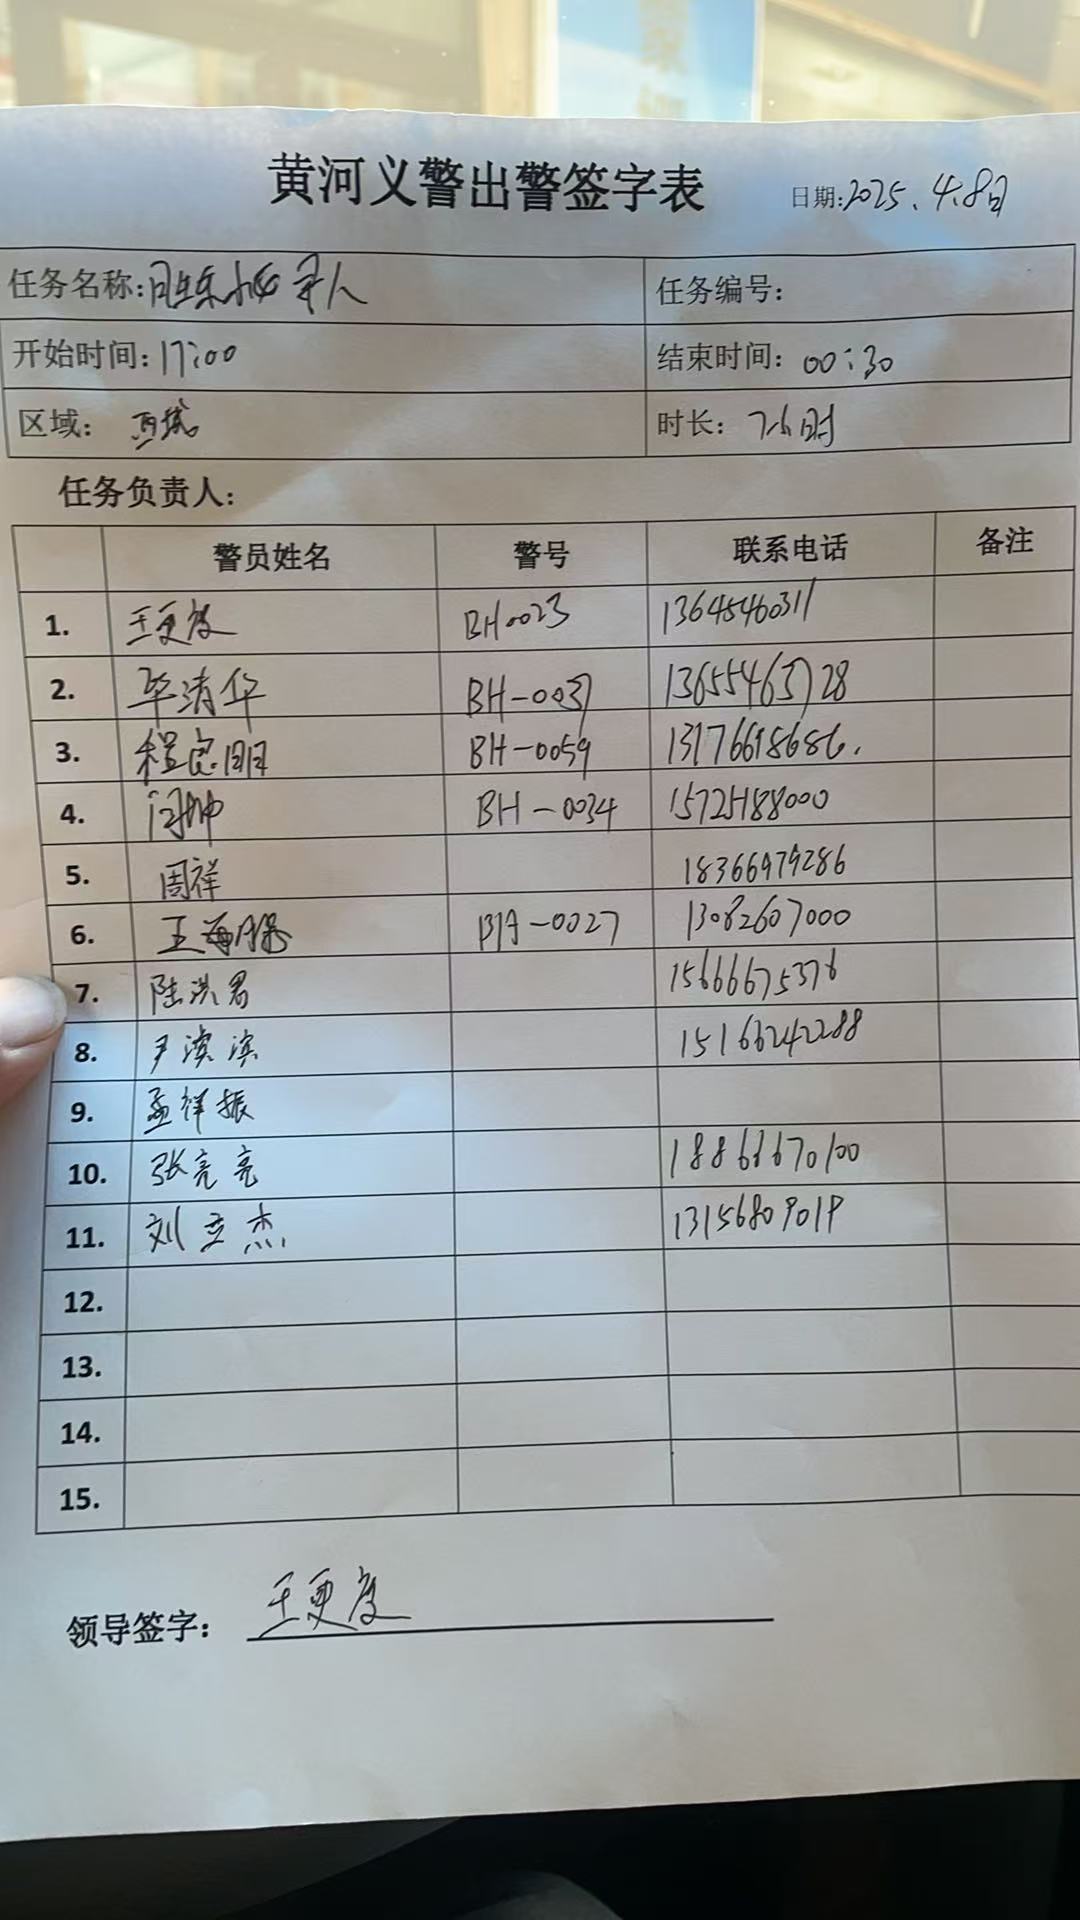 黄河义警出警签字表 日期:2025.4.8日
任务名称: 小区寻人 任务编号:
开始时间:17:00 结束时间: 00:30
区域: 西城 时长: 7小时
任务负责人:
警员姓名 警号 联系电话 备注
1. 王更度 BH0023 13645460311
2. 毕清华 BH-0037 13655465728
3. 程良明 BH-0059 13176698686.
4. 闫帅 BH-0034 15725188000
5. 周祥 18366979286
6. 王海 BH-0027 13082607000
7. 陆洪君 15666675376
8. 尹滨滨 15166242288
9. 孟祥振
10. 张亮亮 18866670100
11. 刘立杰 13156809019
12.
13.
14.
15.
领导签字: 王更度